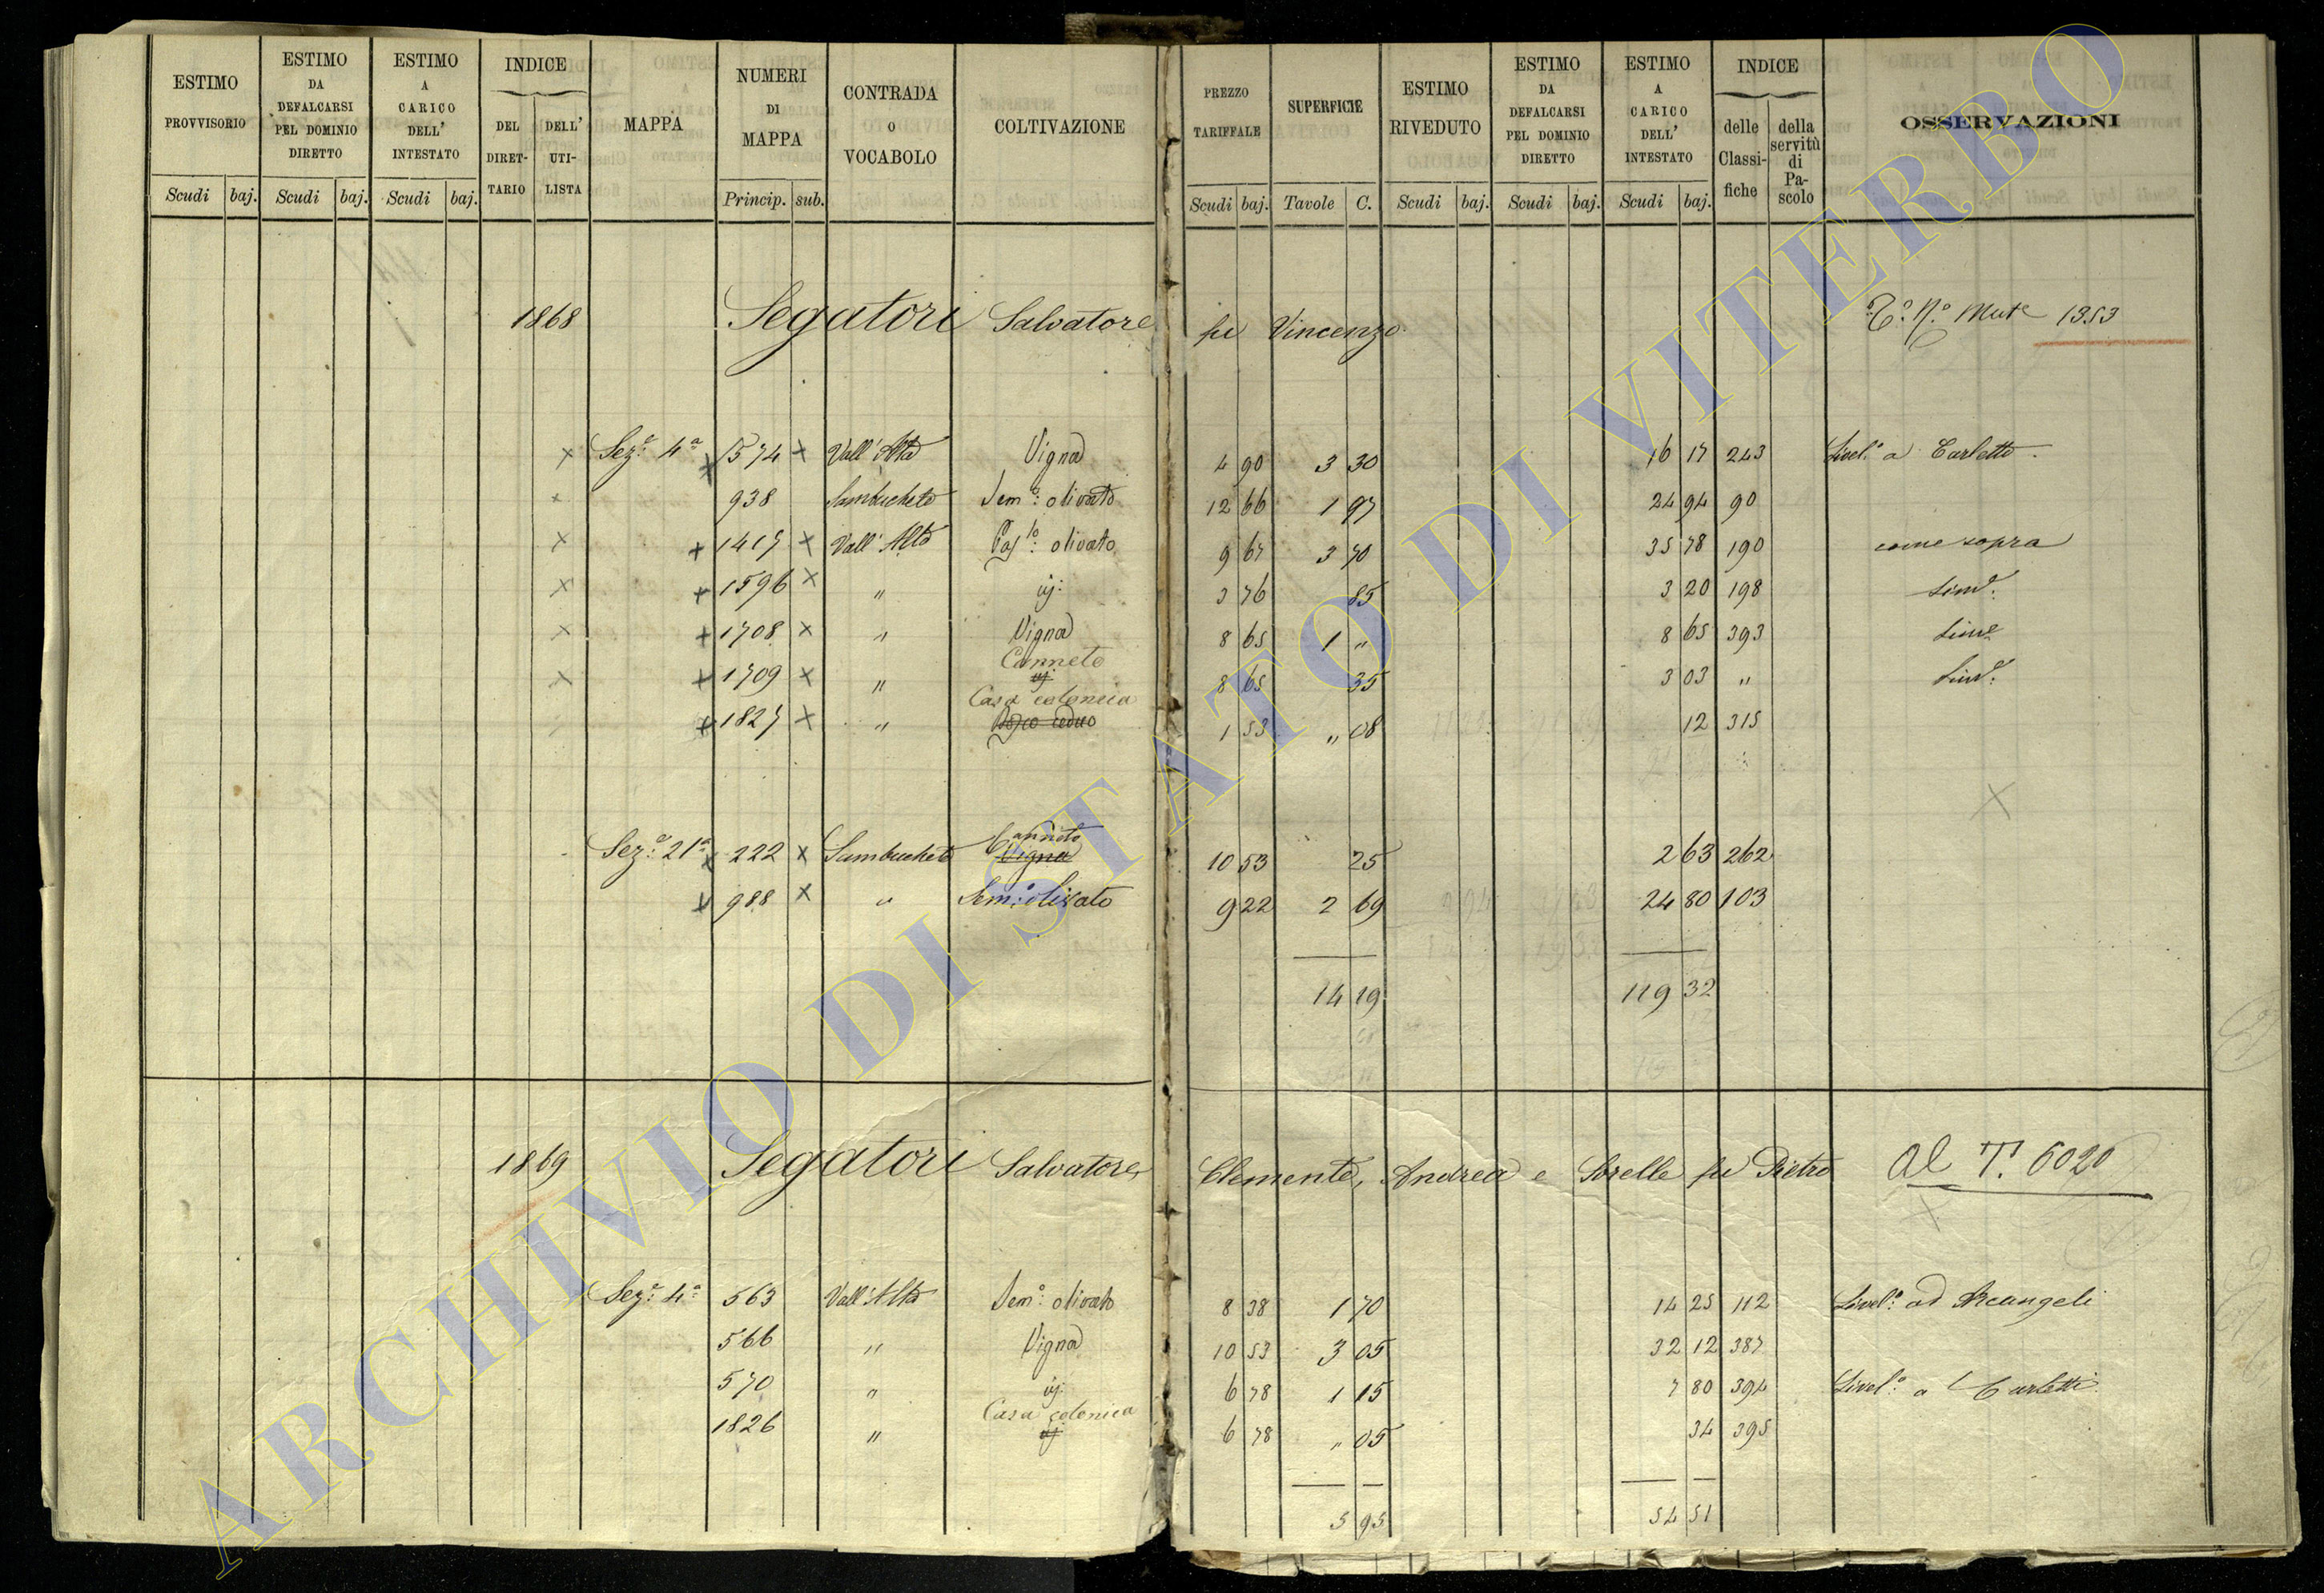 ESTIMO PROVVISORIO Scudi baj.
ESTIMO DA DEFALCARSI PEL DOMINIO DIRETTO Scudi baj.
ESTIMO A CARICO DELL' INTESTATO Scudi baj.
INDICE DEL DIRET-TARIO DELL' UTI-LISTA
MAPPA
NUMERI DI MAPPA Princip. sub.
CONTRADA O VOCABOLO
COLTIVAZIONE
PREZZO TARIFFALE Scudi baj.
SUPERFICIE Tavole C.
ESTIMO RIVEDUTO Scudi baj.
ESTIMO DA DEFALCARSI PEL DOMINIO DIRETTO Scudi baj.
ESTIMO A CARICO DELL' INTESTATO Scudi baj.
INDICE delle Classi-fiche della servitù di Pa-scolo
OSSERVAZIONI
1868 Segatori Salvatore fu Vincenzo 1353
x Sez.e 4a x 1574 x Vall'Alta Vigna 4 90 3 30 16 17 243 Livel.o a Carletto.
x 938 Sambucheto Sem.o olivato 12 66 1 97 24 94 90
x x 1417 x Vall'Alta Pas.lo olivato 9 67 3 70 35 78 190 come sopra
x x 1596 x " iij: 3 76 85 3 20 198 Sim.e
x x 1708 x " Vigna 8 65 1 " 8 65 393 Sime
x x 1709 x " Canneto 8 65 35 3 03 " Sim.e
x 1827 x " Casa colonica Bosco ceduo 1 53 " 08 12 315
x
Sez.e 21a x 222 x Sambucheto Canneto Vigna 10 53 25 2 63 262
x 988 x " Sem.o olivato 9 22 2 69 24 80 103
14 19 119 32
1869 Segatori Salvatore, Clemente, Andrea e Sorelle fu Pietro Al T. 6020
x
Sez.e 4a 563 Vall'Alta Sem.o olivato 8 38 1 70 14 25 112 Livel.o ad Arcangeli
566 " Vigna 10 53 3 05 32 12 387
570 " iij: 6 78 1 15 7 80 394 Livel.o a Carletti
1826 " Casa colonica 6 78 " 05 34 395
5 95 54 51
ARCHIVIO DI STATO DI VITERBO